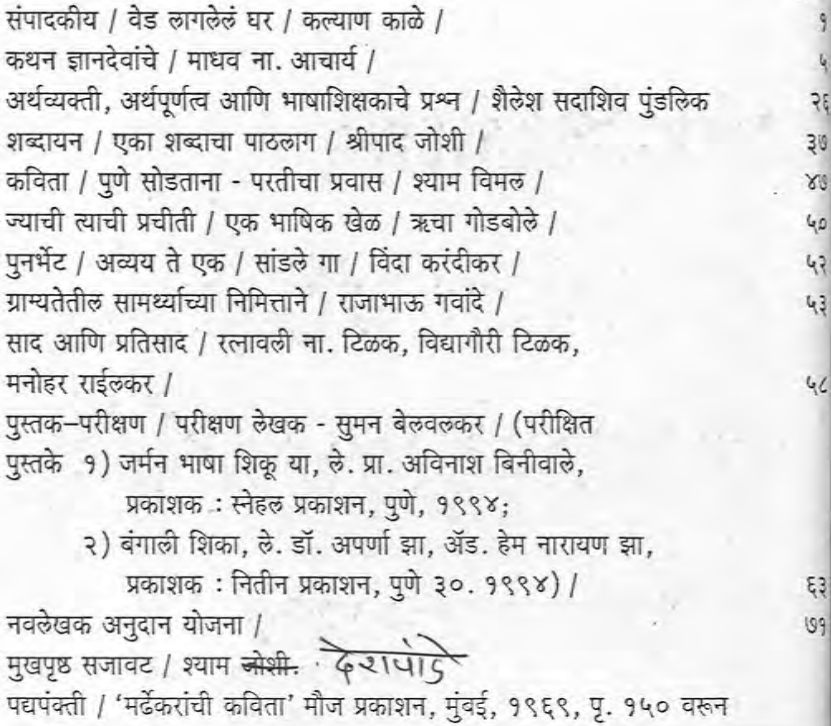 संपादकीय / वेड लागलेलं घर / कल्याण काळे / १
कथन ज्ञानदेवांचे / माधव ना. आचार्य / ५
अर्थव्यक्ती, अर्थपूर्णत्व आणि भाषाशिक्षकाचे प्रश्न / शैलेश सदाशिव पुंडलिक २६
शब्दायन / एका शब्दाचा पाठलाग / श्रीपाद जोशी / ३७
कविता / पुणे सोडताना - परतीचा प्रवास / श्याम विमल / ४७
ज्याची त्याची प्रचीती / एक भाषिक खेळ / ऋचा गोडबोले / ५०
पुनर्भेट / अव्यय ते एक / सांडले गा / विंदा करंदीकर / ५२
ग्राम्यतेतील सामर्थ्याच्या निमित्ताने / राजाभाऊ गवांदे / ५३
साद आणि प्रतिसाद / रत्नावली ना. टिळक, विद्यागौरी टिळक,
मनोहर राईलकर / ५८
पुस्तक–परीक्षण / परीक्षण लेखक - सुमन बेलवलकर / (परीक्षित
पुस्तके १) जर्मन भाषा शिकू या, ले. प्रा. अविनाश बिनीवाले,
प्रकाशक : स्नेहल प्रकाशन, पुणे, १९९४;
२) बंगाली शिका, ले. डॉ. अपर्णा झा, ॲड. हेम नारायण झा,
प्रकाशक : नितीन प्रकाशन, पुणे ३०. १९९४) / ६३
नवलेखक अनुदान योजना / ७१
मुखपृष्ठ सजावट / श्याम जोशी. देशपांडे
पद्यपंक्ती / ‘मर्ढेकरांची कविता’ मौज प्रकाशन, मुंबई, १९६९, पृ. १५० वरून